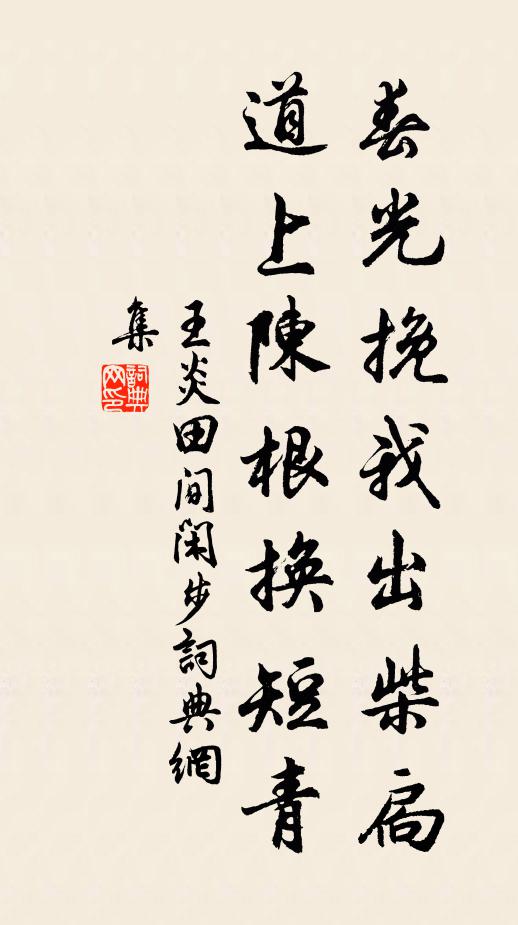 春光挽我出柴扃
道上陳根換短青
王炎田間閑步詞典網
集
詞典
网印